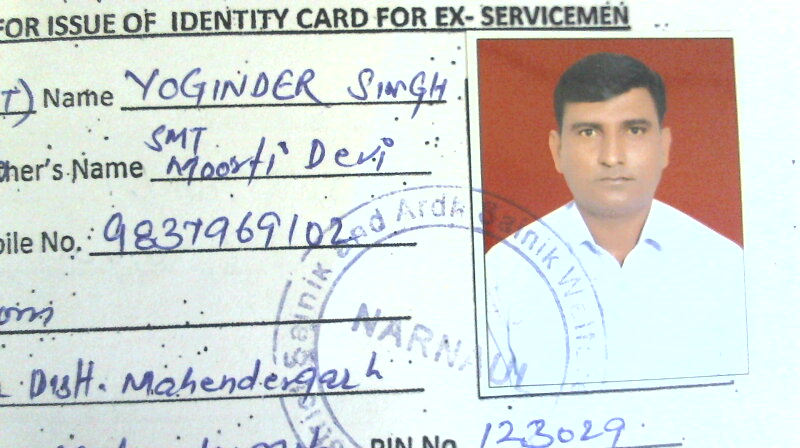 FOR ISSUE OF IDENTITY CARD FOR EX- SERVICEMEN
T) Name YOGINDER SINGH
ther's Name SMT Moorti Devi
bile No. 9837969102
Distt. Mahendergarh
PIN No. 123029
Sainik and Ardh Sainik Welfare
NARNAUL